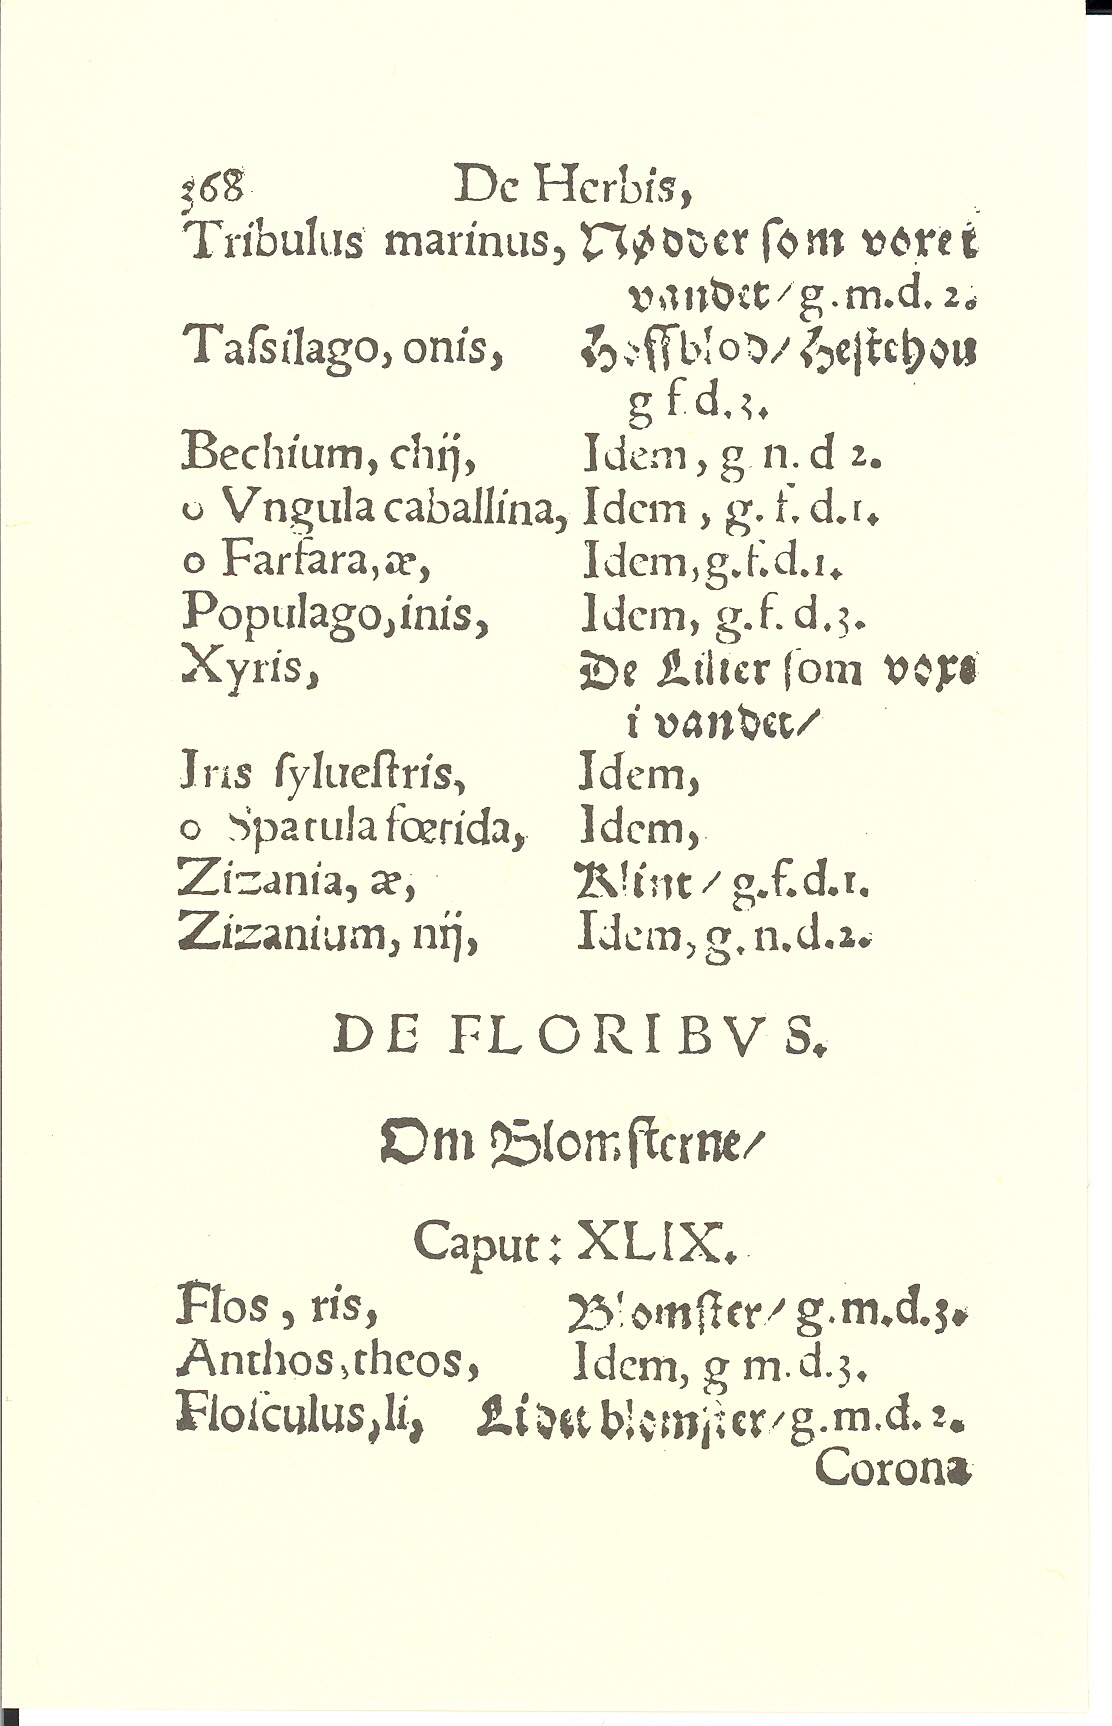 368 De Herbis,
Tribulus marinus, Nødder ſom vore i
vandet / g.m.d. 2.
Taſsilago, onis, Hoſſblod / Heſtehou
g f d.3.
Bechium, chij, Idem, g n. d 2.
o Vngula caballina, Idem, g. f. d.1.
o Farfara, æ, Idem, g.f.d.1.
Populago, inis, Idem, g.f. d.3.
Xyris, De Lilier ſom vore
i vandet /
Iris ſylueſtris, Idem,
o Spatula fœtida, Idem,
Zizania, æ, Klint / g.f.d.1.
Zizanium, nij, Idem, g. n.d.2.
DE FLORIBVS.
Om Blomſterne /
Caput: XLIX.
Flos, ris, Blomſter / g.m.d.3.
Anthos, theos, Idem, g m.d.3.
Floſculus, li, Lidet blomſter / g.m.d. 2.
Corona